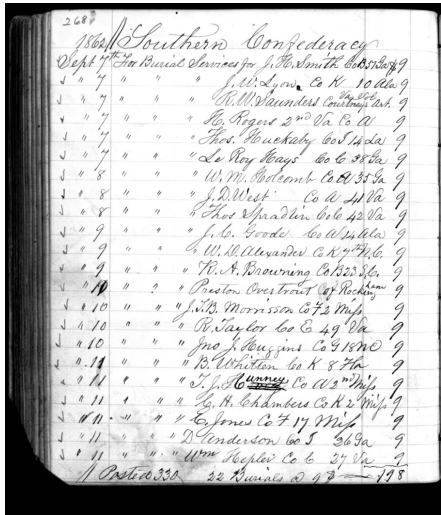 268
1862 Southern Confederacy
Sept 7th For Burial Services for J. H. Smith Co B 51 Ga 9
" 7 " " " J. W. Lyon. Co K 10 Ala 9
" 7 " " " R. W. Saunders Courtneys Art. Va Vol 9
" 7 " " " H. Rogers 2nd Va Co A 9
" 7 " " " Thos. Huckaby Co I 14 La 9
" 7 " " " Le Roy Hays Co C 38 Ga 9
" 8 " " " W. M. Holcomb Co A 35 Ga 9
" 8 " " " J. D. West Co A 41 Va 9
" 8 " " " Thos Spradlin Co C 42 Va 9
" 9 " " " J. C. Goode Co A 14 Ala 9
" 9 " " " W. D. Alexander Co K 7th N. C. 9
" 9 " " " K. A. Browning Co B 23 S. C. 9
" 10 " " " Preston Overtrout of Rockingham 9
" 10 " " " J. T. B. Morrisson Co F 2 Miss 9
" 10 " " " R. Taylor Co E 49 Va 9
" 10 " " " Jno J. Huggins Co G 18 NC 9
" 11 " " " B. Whitten Co K 8 Fla 9
" 11 " " " T. J. Hunney Co A 2nd Miss 9
" 11 " " " C. H. Chambers Co K 2 Miss 9
" 11 " " " E. Jones Co F 17 Miss 9
" 11 " " " D Anderson Co I 26 Ga 9
" 11 " " " Wm Hepler Co C 27 Va 9
Posted 330 22 Burials @ 9 198